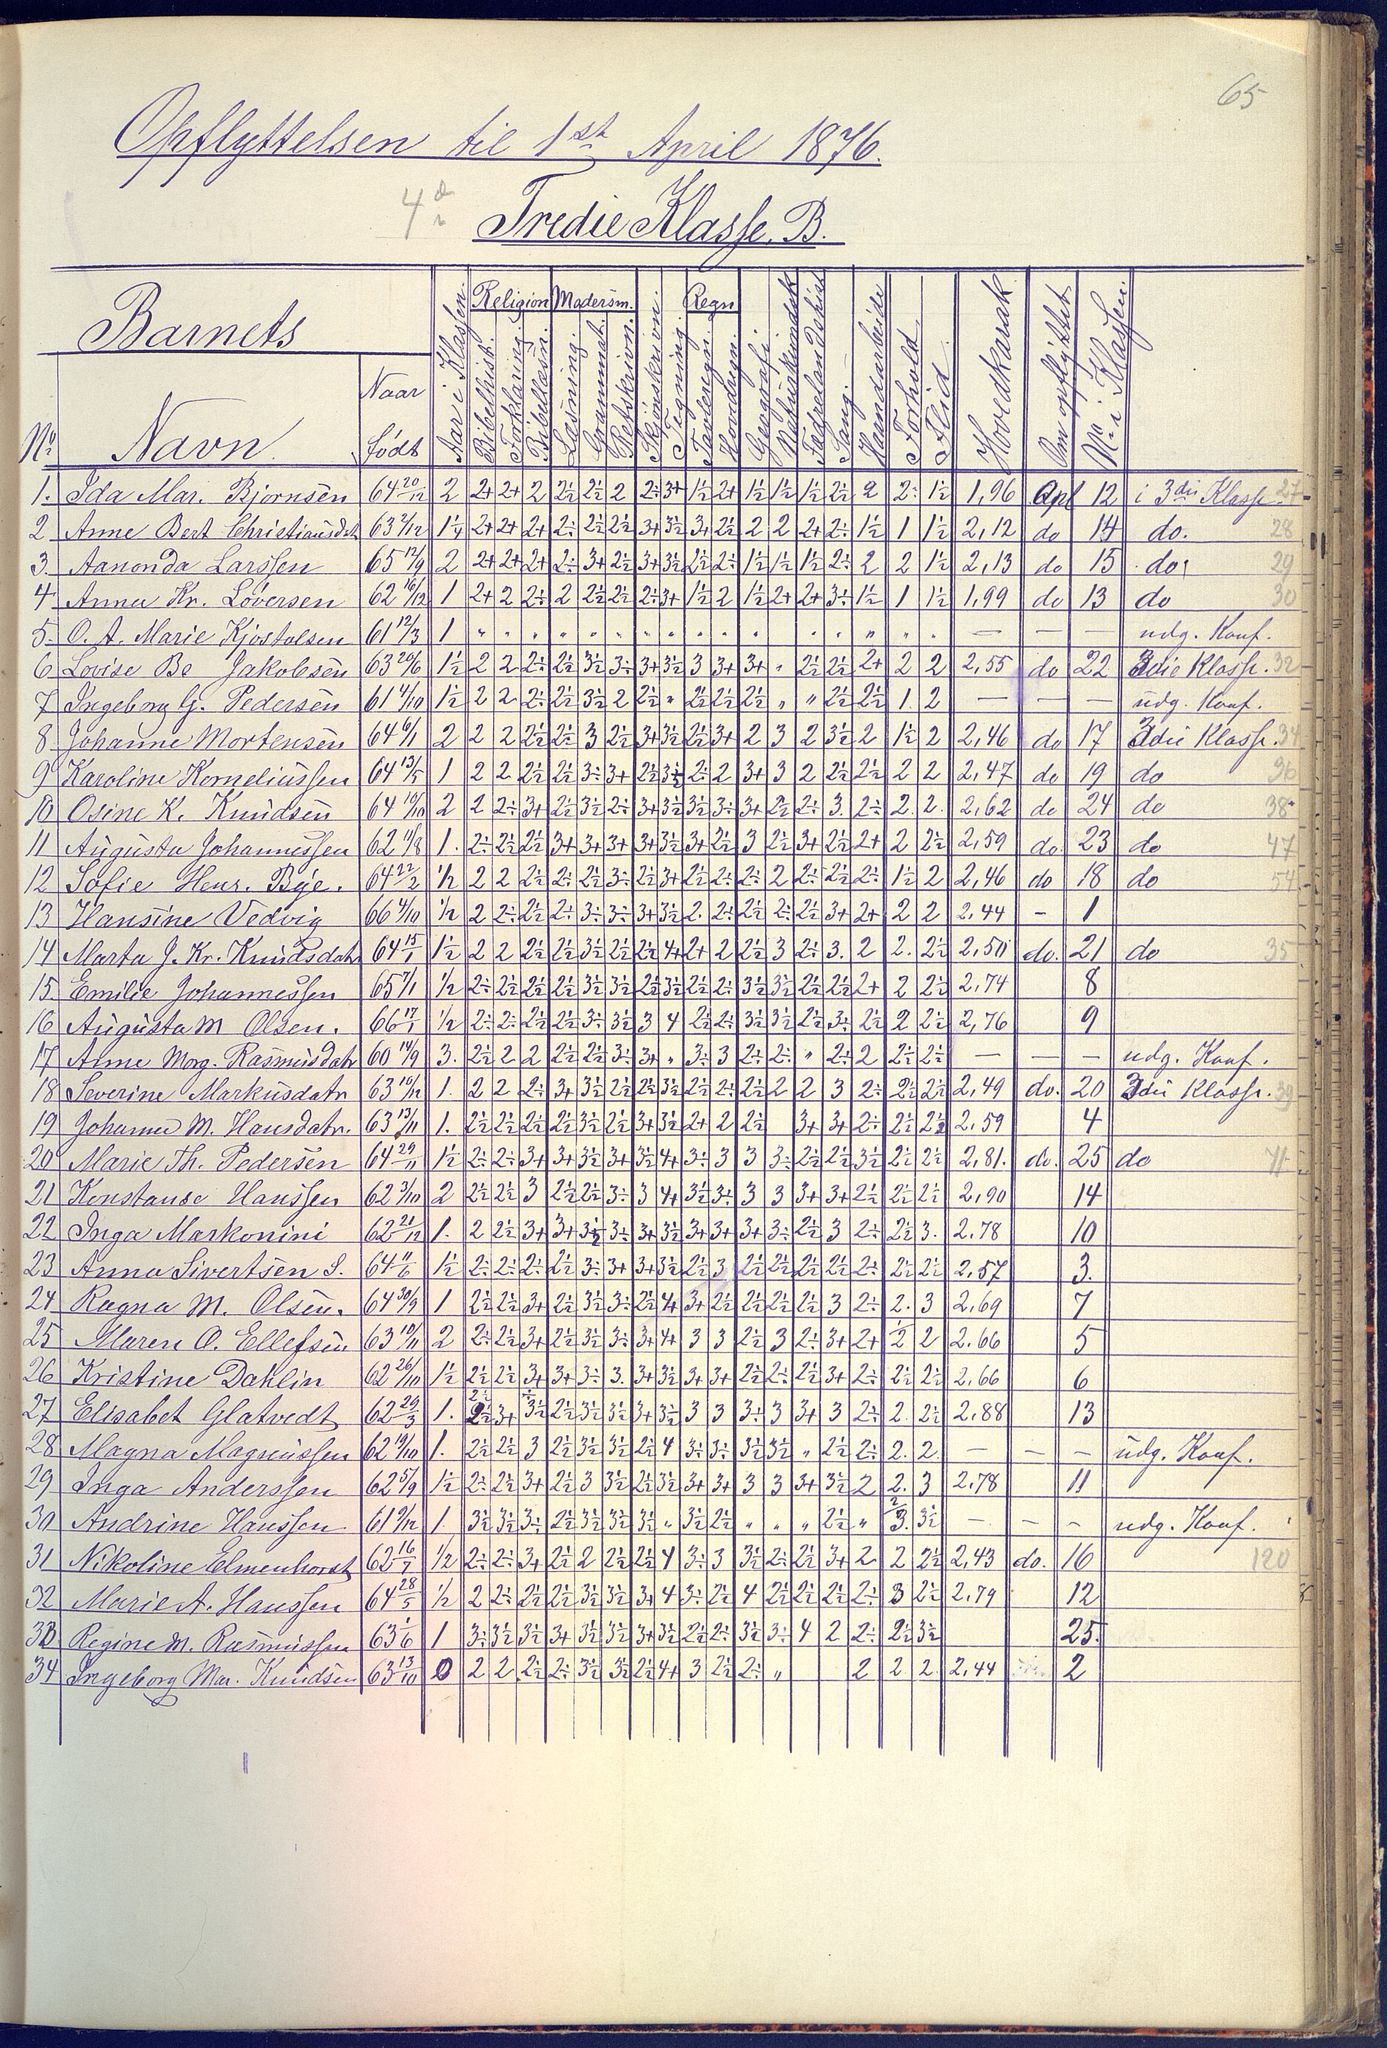 65
Opflyttelsen til 1st April 1876.
4d
Tredie Klasse. B.
Barnets
No Navn. Naar født Aar i Klassen. Religion Bibelhist. Forklaring. Bibellæsn. Modersm. Læsning. Grammat. Retskrivn. Skjønskrivn. Tegning. Regn Tavleregn. Hovdregn. Geografi Naturkundsk Fædreland Sang Haandarbeide Forhold Flid Hovedkarak Om opflyttet No i Klassen.
1. Ida Mar. Bjørnsen 64 20/12 2 2+ 2+ 2 2½ 2½ 2 2÷ 3+ 1½ 2+ 1½ 1½ 1½ 2½ 2 2÷ 1½ 1,96 Opl 12 i 3die Klasse 27
2 Anne Bert Christiansdt 63 2/12 1¼ 2+ 2+ 2+ 2÷ 2½ 2½ 3+ 3½ 3+ 2½ 2 2 2+ 2÷ 1½ 1 1½ 2,12 do 14 do. 28
3. Aanonda Larssen 65 12/9 2 2+ 2+ 2+ 2÷ 3+ 2½ 3+ 3½ 2½ 2÷ 1½ 1½ 1½ 2÷ 2 2 1½ 2,13 do 15 do 29
4. Anna Kr. Løversen 62 16/12 1 2+ 2 2÷ 2 2½ 2½ 2÷ 3+ 1½ 2 1½ 2+ 2+ 3÷ 1½ 1 1½ 1,99 do 13 do 30
5. O. A. Marie Kjøstolsen 61 12/3 1 " " " " " " " " " " " " " " " " " — — — udg. Konf.
6 Lovise Be Jakobsen 63 20/6 1½ 2 2 2÷ 2½ 3½ 3÷ 3+ 3½ 3 3+ 3+ " 2½ 2½ 2+ 2 2 2,55 do 22 3die Klasse. 32
7 Ingeborg G. Pedersen 61 4/10 1½ 2 2 2÷ 2½ 3½ 2 2½ " 2½ 2½ 2½ " " 2½ 2½ 1. 2 — — — udg. Konf.
8 Johanne Mortensen 64 6/1 2 2 2 2½ 2½ 3 2½ 3+ 3½ 2½ 3+ 2 3 2 3½ 2 1½ 2 2,46 do 17 3die Klasse. 34
9 Karoline Korneliussen 64 13/5 1 2 2 2½ 2½ 3÷ 3+ 2½ 3½ 2÷ 2 3+ 3 2 2½ 2½ 2 2 2,47 do 19 do 36
10 Osine K. Knudsen 64 10/10 2 2 2÷ 3+ 2½ 3½ 2÷ 3+ 3½ 3½ 3÷ 3+ 2½ 2÷ 3. 2÷ 2. 2. 2,62 do 24 do 38
11 Augusta Johannessen 62 11/8 1. 2÷ 2½ 2½ 3+ 3+ 3+ 3+ 3½ 3+ 2½ 3 2½ 3+ 2½ 2+ 2 2½ 2,59 do. 23 do 47
12 Sofie Henr. Bye. 64 22/2 ½ 2 2 2½ 2÷ 2½ 3÷ 2½ 3+ 2½ 2÷ 2÷ 2 2½ 2½ 2÷ 1½ 2 2,46 do 18 do 54
13 Hansine Vedvig 66 4/10 ½ 2 2÷ 2½ 2÷ 3÷ 3÷ 3+ 3½ 2. 2÷ 2½ 2÷ 2½ 3+ 2+ 2 2 2,44 - 1
14 Marta J. Kr. Knudsdatr 64 15/1 1½ 2 2 2½ 2½ 3½ 2½ 2½ 4+ 2+ 2 2½ 3 2÷ 3. 2 2. 2½ 2,50 do. 21 do 35
15. Emilie Johannessen 65 7/1 ½ 2÷ 2½ 2½ 2½ 3½ 3½ 2½ 3½ 2½ 2÷ 3½ 3½ 2½ 2½ 2+ 2 2½ 2,74 8
16 Augusta M Olsen. 66 17/1 ½ 2÷ 2÷ 2½ 2½ 3÷ 3½ 3 4 2½ 2÷ 3½ 3½ 2½ 3÷ 2½ 2 2½ 2,76 9
17 Anne Morg. Rasmusdatr 60 14/9 3. 2½ 2 2 2½ 2½ 3÷ 3+ " 3÷ 3 2÷ 2÷ " 2÷ 2 2½ 2½ — — — udg. Konf.
18 Severine Markusdatr 63 10/12 1. 2 2 2÷ 3+ 3½ 2½ 2½ 3½ 2½ 2÷ 2½ 2 2 3 2÷ 2½ 2½ 2,49 do. 20 3die Klasse. 39
19 Johanne M. Hansdatr. 63 13/11 1. 2½ 2½ 2½ 2½ 3½ 2½ 3+ 3½ 2+ 2 2½ 3+ 3+ 2÷ 2½ 2½ 2,59 4
20 Marie Th. Pedersen 64 29/11 1½ 2÷ 2÷ 3+ 3+ 3½ 3+ 3½ 4+ 3÷ 3 3 3÷ 2½ 2½ 3½ 2½ 2½ 2,81. do. 25 do 71
21 Konstanse Hanssen 62 3/10 2 2½ 2½ 3 2½ 2½ 3÷ 3 4+ 3½ 3÷ 3 3 3+ 3+ 2½ 2½ 2½ 2,90 14
22 Inga Markonini 62 21/12 1. 2 2½ 3+ 3+ 3½ 3÷ 3+ 3½ 3+ 3+ 3+ 3÷ 2½ 3 2÷ 2½ 3. 2,78 10
23 Anna Sivertsen S. 64 11/6 1½ 2÷ 2÷ 2÷ 2½ 3÷ 3+ 3+ 3½ 2½ 3 2½ 2½ 2½ 2½ 2÷ 2½ 2½ 2,57 3.
24 Ragna M. Olsen. 64 30/9 1 2½ 2½ 3+ 2½ 3½ 3÷ 2½ 4+ 3+ 2½ 2½ 2½ 2½ 3 2÷ 2. 3 2,69 7
25 Maren O. Ellefsen 63 10/11 2 2÷ 2½ 3+ 2½ 3½ 3÷ 3+ 4+ 3 3 2½ 3 2÷ 3+ 2+ ½ 2 2,66 5
26 Kristine Dahlin 62 26/10 1½ 2½ 2½ 3+ 3+ 3÷ 3. 3+ 3½ 3+ 3+ 2½ 2÷ 2½ 3+ 2÷ 2½ 2½ 2,66 6
27 Elisabet Glatvedt 62 29/3 1. 2½ 3+ 3½ 2½ 3½ 3½ 3+ 3½ 3 3 3÷ 3 3+ 3 2÷ 2. 2½ 2,88 13
28 Magna Magnussen 62 19/10 1. 2½ 2½ 3 2½ 3½ 3½ 2½ 4 3÷ 3÷ 3½ 3½ " 2½ 2÷ 2. 2. — — — udg. Konf.
29 Inga Anderssen 62 5/9 1½ 2÷ 2½ 3+ 2½ 3 3½ 2½ 3½ 3+ 3+ 3 3 3+ 3½ 2 2. 3 2,78 11
30 Andrine Hanssen 61 9/12 1 3½ 3½ 3÷ 2½ 3½ 3½ 3½ " 3½ 2½ " " " 2½ " 3. 3½ — — — udg. Konf.
31 Nikoline Elmenhorst 62 16/7 ½ 2÷ 2÷ 3+ 2½ 2 2½ 2½ 4 3÷ 3 3½ 2÷ 2½ 3+ 2 2 2½ 2,43 do. 16 120
32 Marie A. Hanssen 64 28/5 ½ 2 2÷ 2½ 2½ 3½ 3½ 3+ 4 3÷ 2½ 4 2½ 2½ 2½ 2÷ 3 2½ 2,79 12
33 Regine M. Rasmussen 63 1/6 1 3÷ 3½ 3½ 3+ 3½ 3½ 3+ 3½ 2½ 2÷ 3½ 3÷ 4 2 2÷ 2½ 3½ 25.
34 Ingeborg Mar. Knudsen 63 13/10 0 2 2 2½ 2÷ 3½ 3½ 2½ 4+ 3 2½ 2÷ " 2 2. 2. 2,44 2